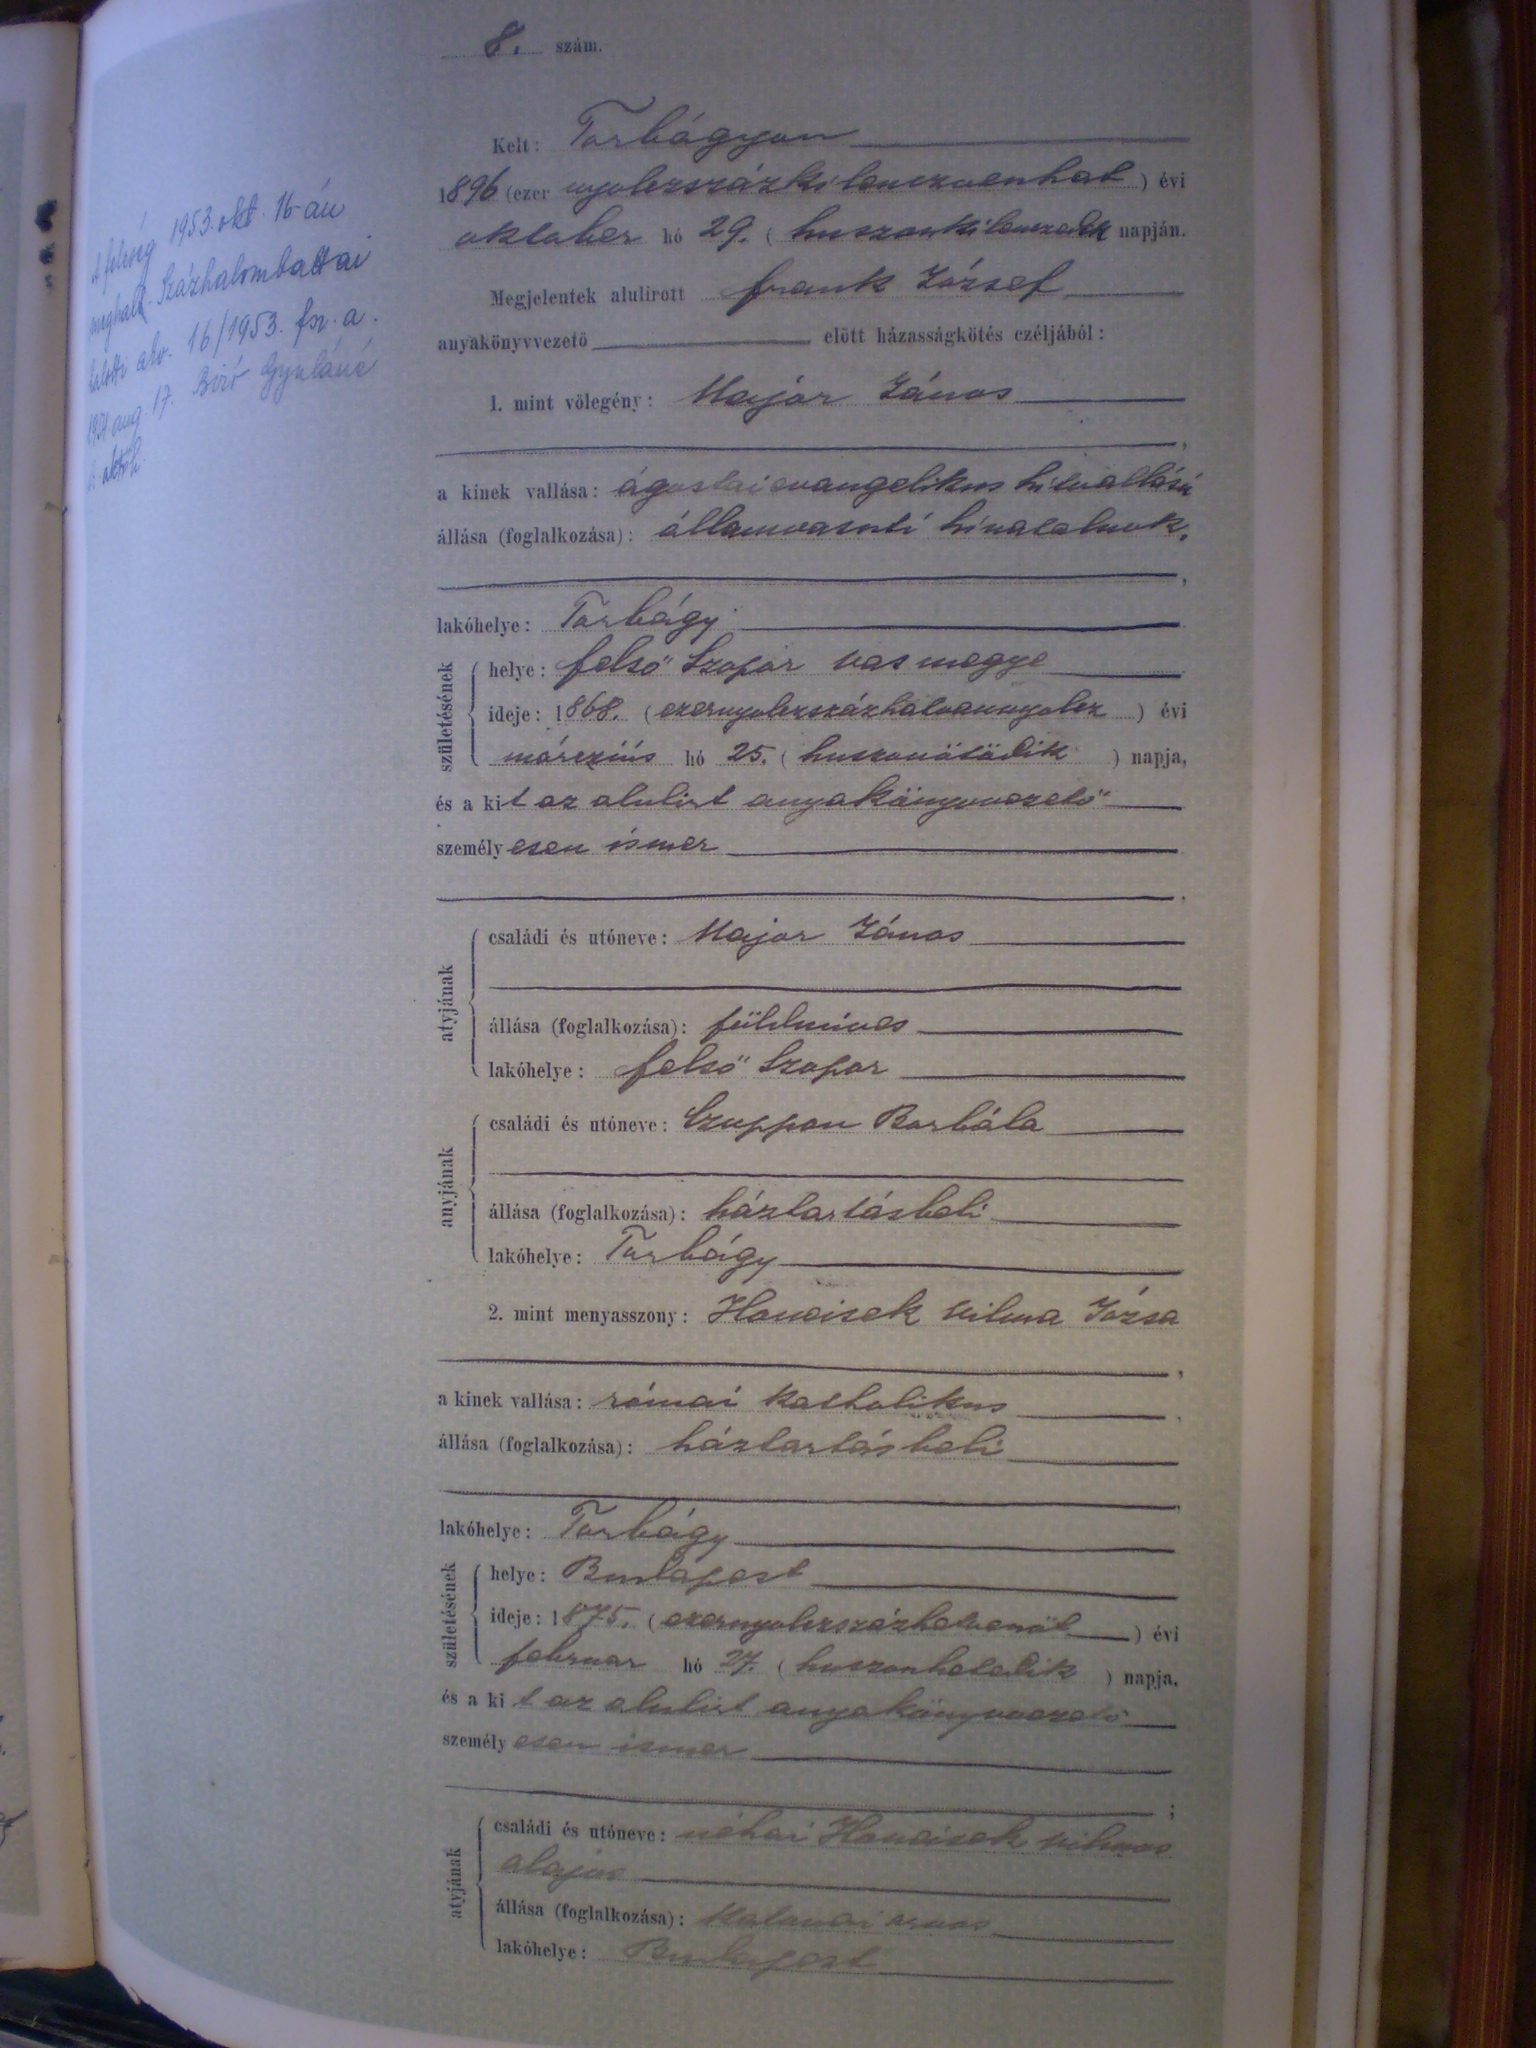 8. szám.
Kelt: Torbágyon
1896 (ezer nyolczszázkilenczvenhat) évi
oktober hó 29. (huszonkilenczedik napján.
Megjelentek alulirott Frank József
anyakönyvvezető előtt házasságkötés czéljából:
1. mint vőlegény: Major János
a kinek vallása: ágostai evangelikus hitvallású
állása (foglalkozása): államvasuti hivatalnok,
lakóhelye: Torbágy
születésének
helye: Felső Szopor vas megye
ideje: 1868. (ezernyolczszázhatvannyolcz) évi
márczius hó 25. (huszonötödik) napja,
és a kit az alulirt anyakönyvvezető
személyesen ismer
atyjának
családi és utóneve: Major János
állása (foglalkozása): földmives
lakóhelye: Felső Szopor
anyjának
családi és utóneve: Czuppon Borbála
állása (foglalkozása): háztartásbeli
lakóhelye: Torbágy
2. mint menyasszony: Hancisek Vilma Józsa
a kinek vallása: római katholikus
állása (foglalkozása): háztartásbeli
lakóhelye: Torbágy
születésének
helye: Budapest
ideje: 1875. (ezernyolczszázhetvenöt) évi
februar hó 27. (huszonhetedik) napja,
és a kit az alulirt anyakönyvvezető
személyesen ismer
atyjának
családi és utóneve: néhai Hancisek Vilmos
Alajos
állása (foglalkozása): katonai orvos
lakóhelye: Budapest
A feleség 1953. okt. 16-án
meghalt. Százhalombattai
halotti akv. 16/1953. fsz. a.
aug. 17. Biró Gyuláné